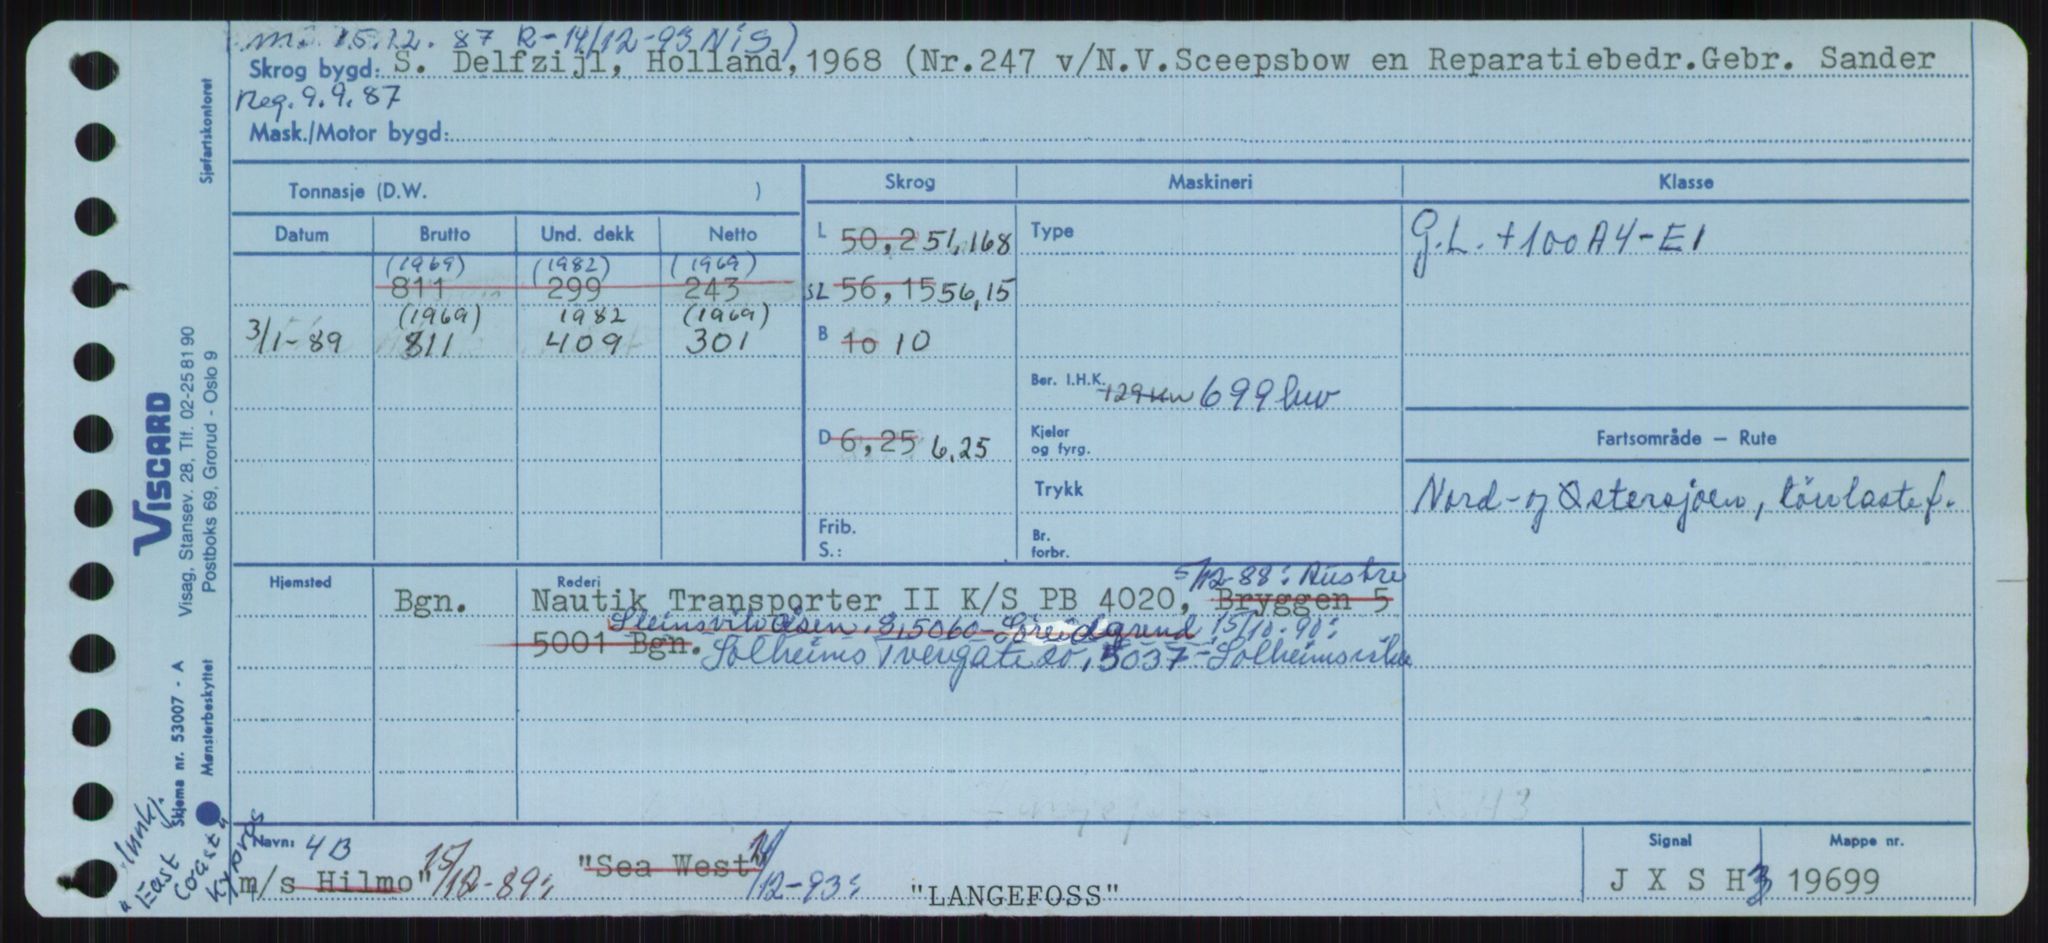 m. 15.12. 87 R-14/12-93 NIS)
Skrog bygd: S. Delfzijl, Holland, 1968 (Nr.247 v/N.V.Sceepsbow en Reparatiebedr.Gebr. Sander
Reg. 9.9.87
Mask./Motor bygd:
Sjøfartskontoret
Tonnasje (D.W. )
Skrog
Maskineri
Klasse
Datum Brutto Und. dekk Netto
(1969) (1982) (1969)
811 299 243
(1969) 1982 (1969)
3/1-89 811 409 301
L 50,2 51,168
SL 56,15 56,15
B 10 10
D 6,25 6,25
Frib.
S.:
Type
Ber. I.H.K. 129 kw 699 kw
Kjeler
og fyrg.
Trykk
Br.
forbr.
G.L. +100A4-E1
Fartsområde – Rute
Nord- og Østersjøen, törrlastef.
VISCARD
Visag, Stansev. 28, Tlf. 02-25 81 90
Postboks 69, Grorud - Oslo 9
Skjema nr. 53007 - A
Mønsterbeskyttet
Hjemsted
Rederi
5/12-88: Austre
Bgn. Nautik Transporter II K/S PB 4020, Bryggen 5
15/10-90:
5001 Bgn. Solheims 5037-Solheimsviken
Navn: 4B
m/s Hilmo" 15/12-89: "Sea West" 14/12-93: "LANGEFOSS"
Signal
J X S H 3
Mappe nr.
19699
"East
Coast"
Kypros